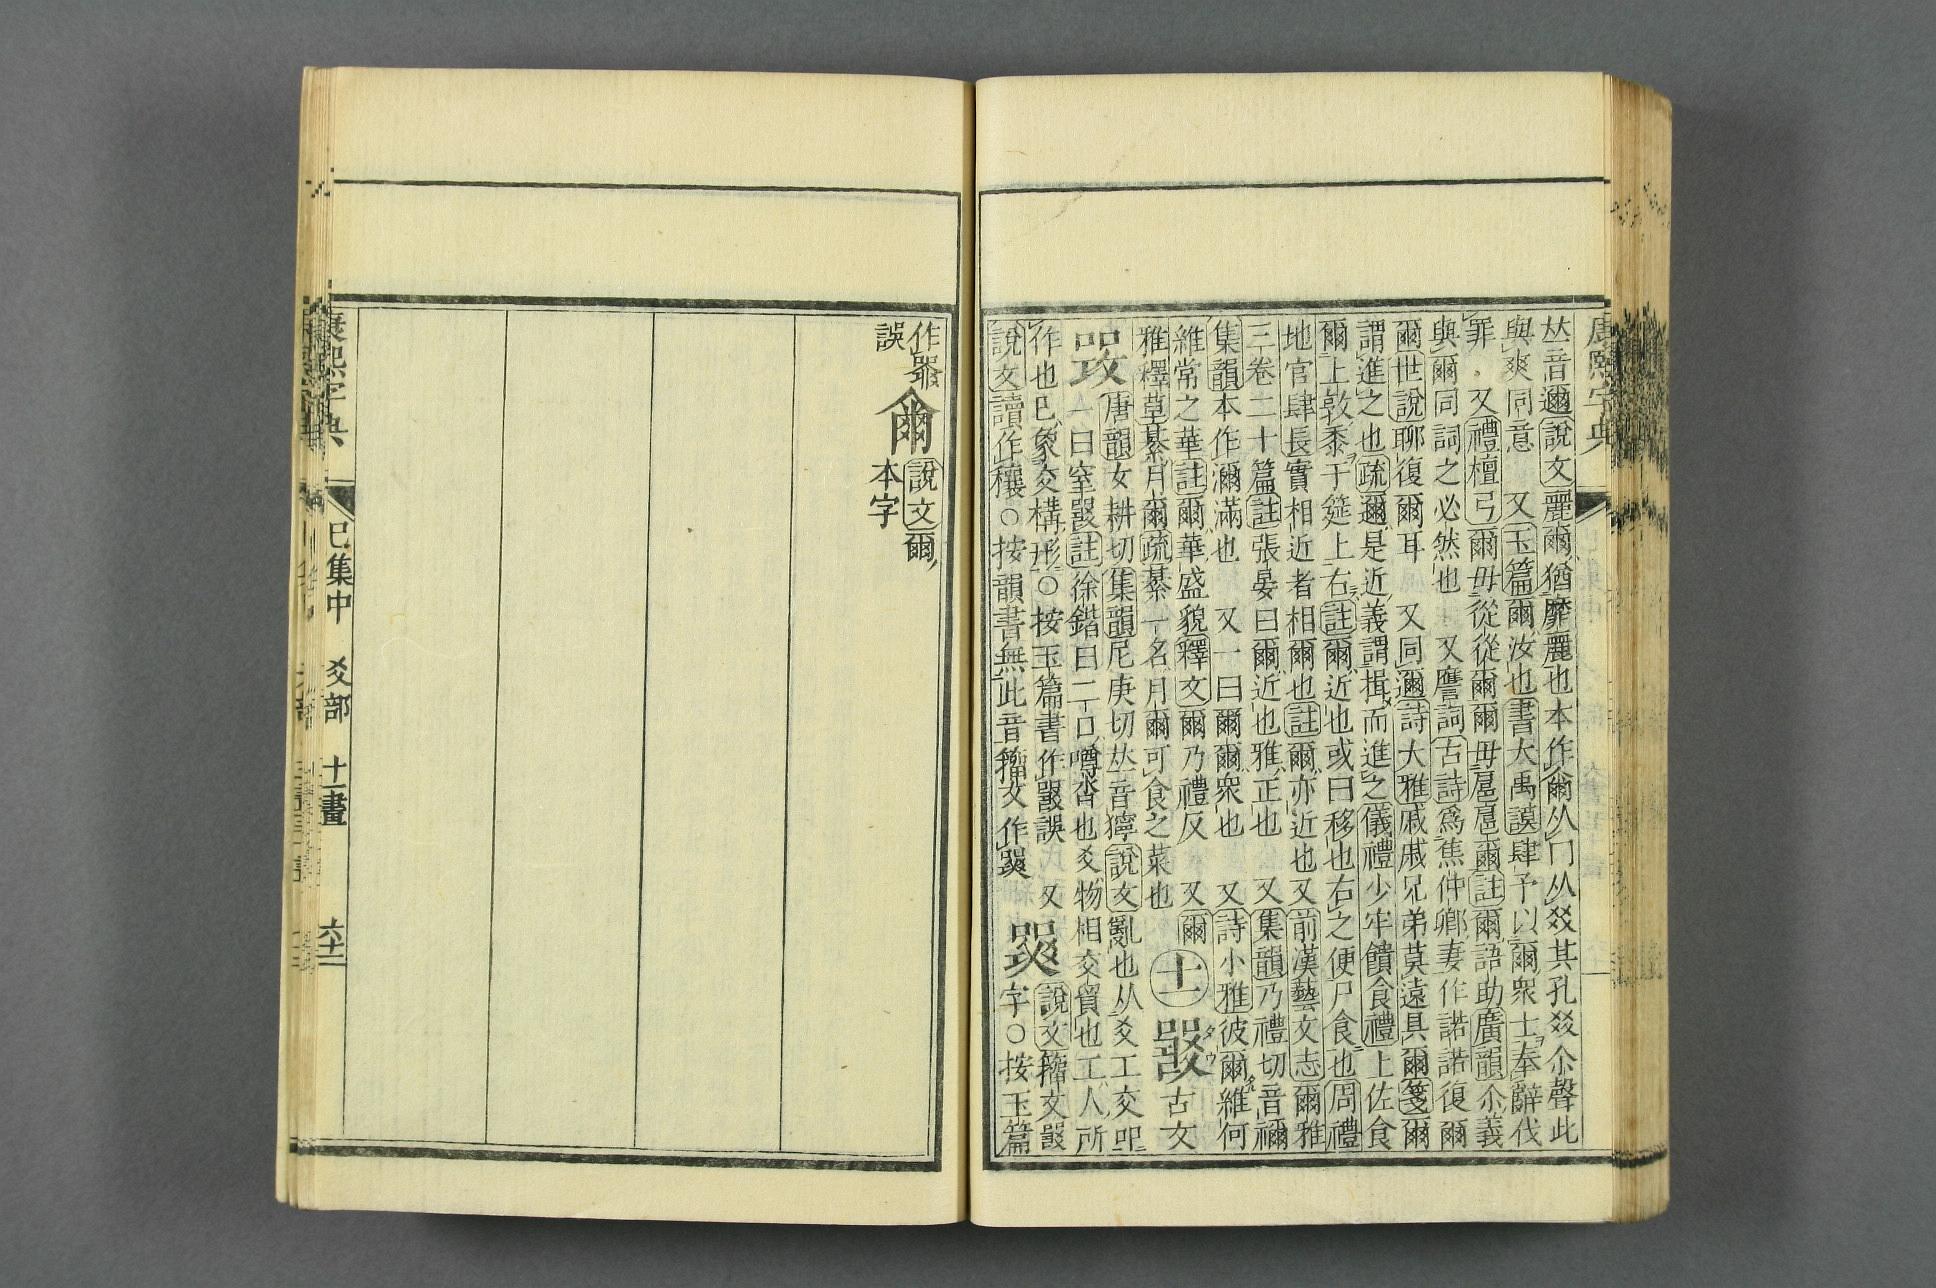 康熙字典
𠀤音邇說文麗爾猶靡麗也本作爾从冂从㸚其孔㸚尒聲此
與爽同意 又玉篇爾汝也書大禹謨肆予以爾衆士奉辭伐
罪 又禮檀弓爾毋從從爾爾毋扈扈爾註爾語助廣韻尒義
與爾同詞之必然也 又譍詞古詩爲焦仲卿妻作諾諾復爾
爾世說聊復爾耳 又同邇詩大雅戚戚兄弟莫遠具爾箋爾
謂進之也疏邇是近義謂揖而進之儀禮少牢饋食禮上佐食
爾上敦黍于筵上右註爾近也或曰移也右之便尸食也周禮
地官肆長實相近者相爾也註爾亦近也又前漢藝文志爾雅
三卷二十篇註張晏曰爾近也雅正也 又集韻乃禮切音禰
集韻本作濔滿也 又一曰爾爾衆也 又詩小雅彼爾維何
維常之華註爾華盛貌釋文爾乃禮反 又爾
雅釋草綦月爾疏綦一名月爾可食之菜也
十一
㗊 古文
唐韻女耕切集韻尼庚切𠀤音獰說文亂也从爻工交吅
一曰窒𤕦註徐鍇曰二口噂沓也爻物相交質也工人所
作也巳象交構形○按玉篇書作𤕦誤 又
說文讀作穰○按韻書無此音籀文作𤕤
說文籀文𤕦
字○按玉篇
作
誤
說文爾
本字
康熙字典
巳集中 爻部 十一畫 六十二